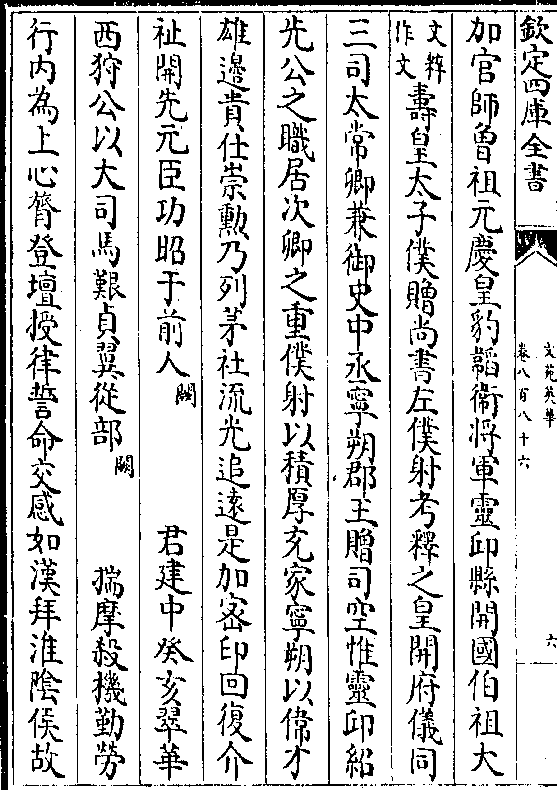 欽定四庫全書
文苑英華
卷八百八十六
六
加官師魯祖元慶皇豹韜衛將軍靈丘縣開國伯祖大
文粹作文
壽皇太子僕贈尚書左僕射考釋之皇開府儀同
三司太常卿兼御史中丞寧朔郡王贈司空惟靈丘紹
先公之職居次卿之重僕射以積厚克家寧朔以偉才
雄邊貴仕崇勲乃列茅社流光追遠是加密印回復介
祉開先元臣功昭于前人闕 君建中癸亥翠華
西狩公以大司馬艱貞翼從部闕 揣摩殺機勤勞
行内為上心膂登壇授律誓命交感如漢拜淮陰侯故